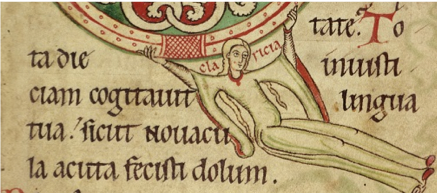 tate. To
cla ricia
ta die iniusti
ciam cogitauit lingua
tua. sicut nouacu
la acuta fecisti dolum.